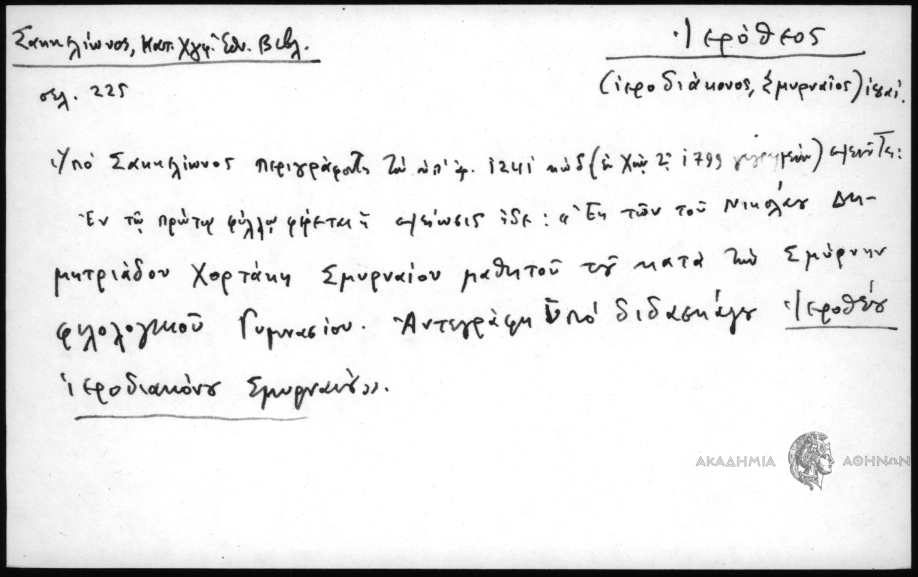 Σακκελίωνος, Κατ. Χγφ. Ἐθν. Βιβλ.
Ἱερόθεος
σελ. 225
(ἱεροδιάκονος, Σμυρναῖος)
Ὑπό Σακκελίωνος περιγράφοντος τὸν ὑπ' ἀρ. 1241 κώδ (ἐν 1799) σημειοῦται:
Ἐν τῷ πρώτῳ φύλλῳ φέρεται ἡ σημείωσις ἥδε: «Ἐκ τῶν τοῦ Νικολάου Δη-
μητριάδου Χορτάκη Σμυρναίου μαθητοῦ τοῦ κατά τὴν Σμύρνην
φιλολογικοῦ Γυμνασίου. Ἀντεγράφη ὑπό διδασκάλου Ἱεροθέου
ἱεροδιακόνου Σμυρναίου».
ΑΚΑΔΗΜΙΑ ΑΘΗΝΩΝ